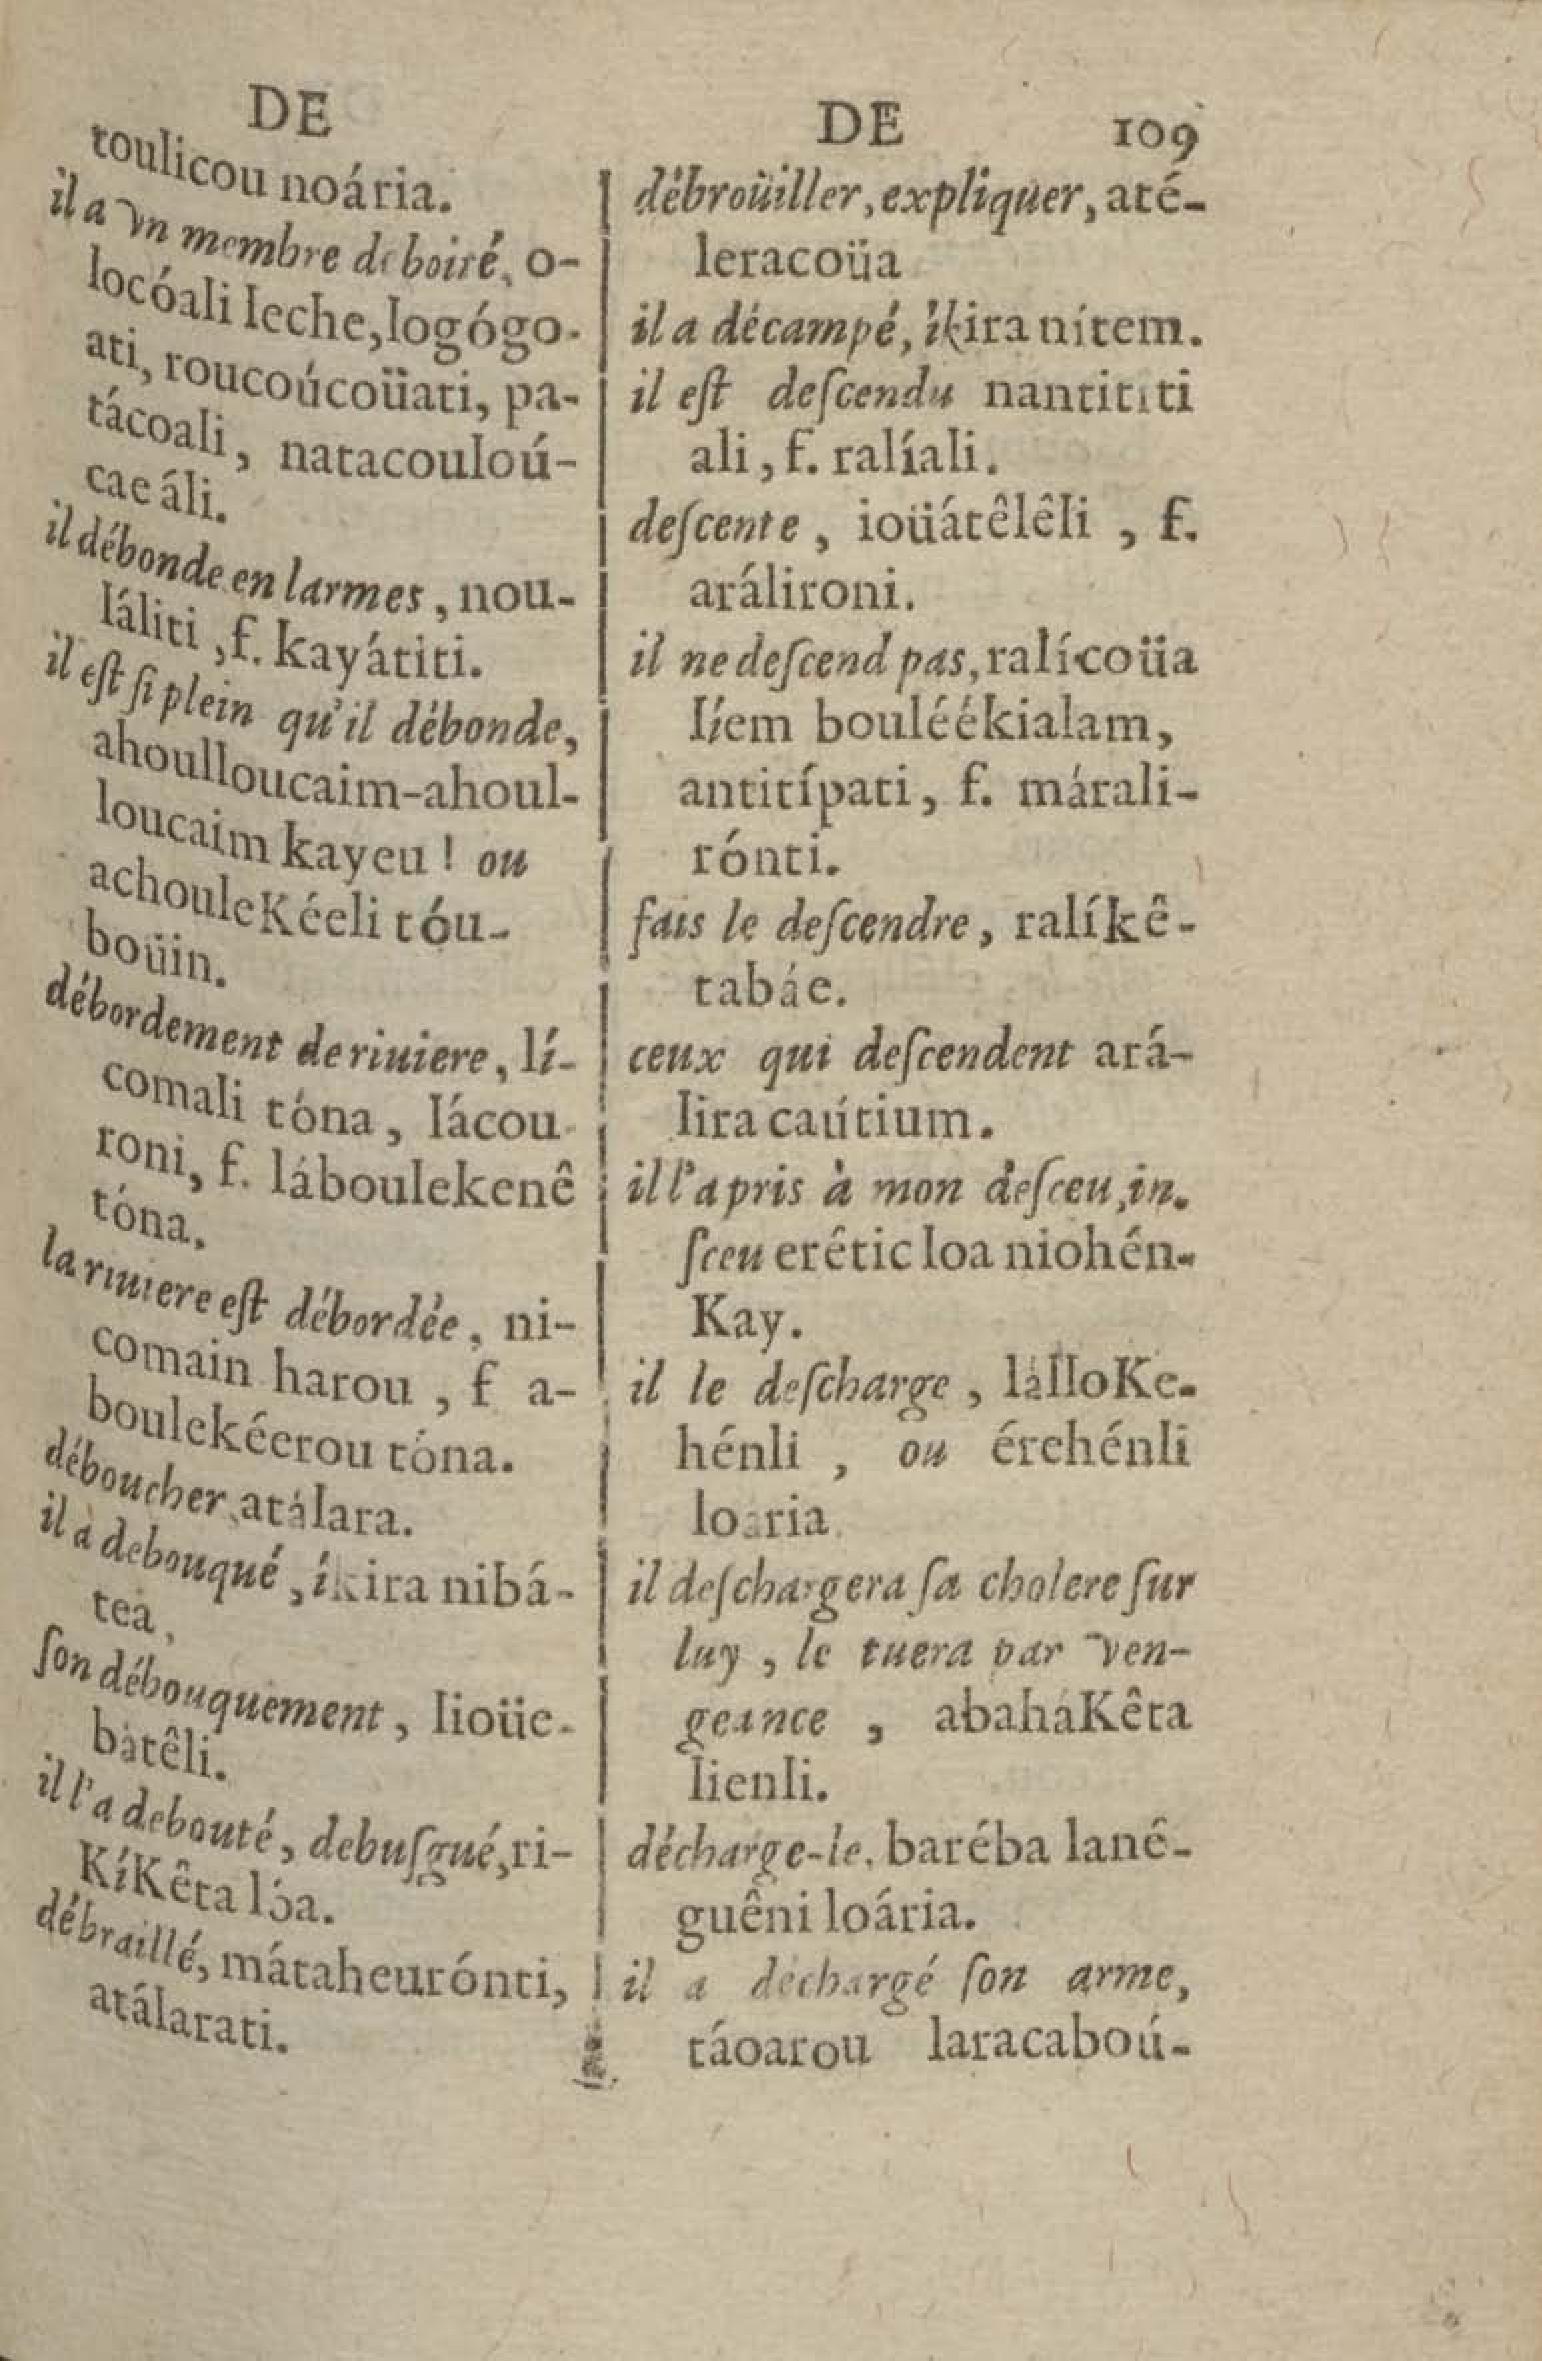 DE
toulicou noária.
il a vn membre deboité, o-
locóali leche, logógo-
ati, roucoúcoüati, pa-
tácoali, natacouloú-
cae áli.
il débonde en larmes, nou-
láliti, f. kayátiti.
il eſt ſi plein qu'il débonde,
ahoulloucaim-ahoul-
loucaim kayeu ! ou
achouleKéeli tóu-
boüin.
débordement de riuiere, lí-
comali tóna, lácou-
roni, f. láboulekenê
tóna.
la riuiere eſt débordée, ni-
comain harou, f a-
boulekéerou tóna.
déboucher, atálara.
il a debouqué, íkira nibá-
tea,
ſon débouquement, lioüe-
bàtêli.
il l'a debouté, debuſgué, ri-
KíKêta lóa.
débraillé, mátaheurónti,
atálarati.
DE 109
débroüiller, expliquer, até-
leracoüa
il a décampé, íkira nítem.
il eſt deſcendu nantititi
ali, f. ralíali.
deſcente, ioüátêlêli, f.
arálironi.
il ne deſcend pas, ralícoüa
líem bouléékialam,
antitípati, f. márali-
rónti.
fais le deſcendre, ralíkê-
tabáe.
ceux qui deſcendent ará-
lira caútium.
il l'a pris à mon deſceu, in-
ſceu erêtic loa niohén-
Kay.
il le deſcharge, lálloKe-
hénli, ou érehénli
loaria.
il deſchargera ſa cholere ſur
luy, le tuera par ven-
geance, abaháKêta
lienli.
décharge-le, baréba lanê-
guêni loária.
il a déchargé ſon arme,
táoarou laracaboú-